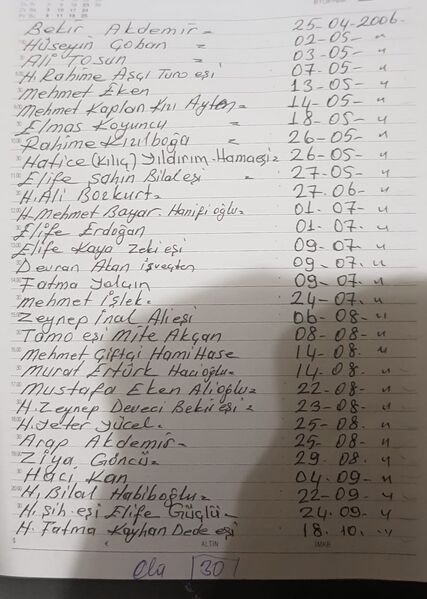 Bekir Akdemir = 25-04-2006.
Hüseyin Çoban = 02-05- "
Ali Tosun = 03-05- "
H. Rahime Aşçı Turo eşi 07-05- "
Mehmet Eken 13-05- "
Mehmet Kaplan Kızı Ayten = 14-05- "
Elmas Koyuncu = 18-05- "
Rahime Kızılboğa = 26-05- "
Hatice (Kılıç) Yıldırım. Hama eşi = 26-05 "
Elife Şahin Bilal eşi = 27-05- "
H. Ali Bozkurt = 27.06- "
H. Mehmet Bayar. Hanifi oğlu = 01. 07- "
Elife Erdoğan 01-07- "
Elife Kaya Zeki eşi 09-07- "
Devran Akan İsveçten 09-07. "
Fatma Yalçın 09-07. "
Mehmet İşlek. 24-07. "
Zeynep İnal Ali eşi 06-08- "
Tamo eşi Mite Akçan 08-08- "
Mehmet Çiftçi Hami Hase 14-08. "
Murat Ertürk Hacioğlu = 14-08. "
Mustafa Eken Alioğlu = 22-08- "
H. Zeynep Deveci Bekir eşi = 23-08- "
H. Yeter Yücel. 25-08. "
Arap Akdemir = 25-08 "
Ziya Göncü = 29. 08. "
Hacı Kan 04. 09- "
H. Bilal Habiboğlu = 22-09- "
H. Şıh. eşi Elife Güçlü - 24. 09- "
H. Fatma Kayhan Dede eşi 18. 10. "
ALTIN
30